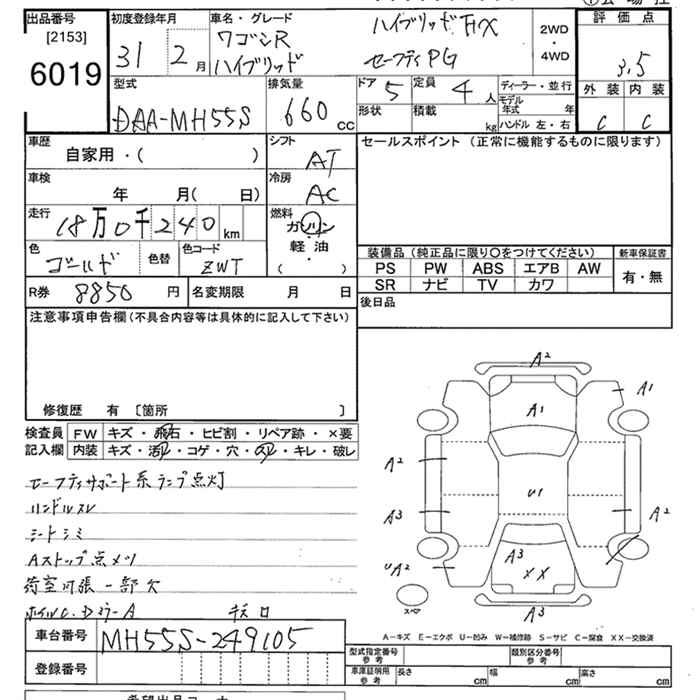 出品番号
[2153]
6019
初度登録年月
31 2月
車名・グレード
ワゴンR
ハイブリッド
ハイブリッドFX
セーフティPG
2WD
・
4WD
評価点
3.5
外装 内装
C C
型式
DAA-MH55S
排気量
660 cc
ドア 5
定員 4人
ディーラー・並行
形状
積載 kg
モデル年式 年
ハンドル 左・右
車歴
自家用・( )
シフト
AT
セールスポイント (正常に機能するものに限ります)
車検
年 月( 日)
冷房
AC
走行
18万0千240km
燃料
ガソリン
軽・油
( )
色
ゴールド
色替
色コード
ZWT
装備品 (純正品に限り○をつけてください)
新車保証書
PS PW ABS エアB AW
有・無
SR ナビ TV カワ
R券 8850 円
名変期限 月 日
後日品
注意事項申告欄(不具合内容等は具体的に記入して下さい)
修復歴 有 [箇所 ]
検査員
記入欄
FW キズ・飛石・ヒビ割・リペア跡・×要
内装 キズ・汚れ・コゲ・穴・スレ・キレ・破レ
セーフティサポート系ランプ点灯
ハンドルスレ
シートシミ
Aストップ点メツ
荷室内張一部欠
A2
A1
A1
A2
U1
A3
A2
A3
UA2
XX
スペア
A3
A−キズ E−エクボ U−凹み W−補修跡 S−サビ C−腐食 XX−交換済
車台番号 MH55S-249105
登録番号
型式指定番号
参考
類別区分番号
参考
車庫証明用
参考
長さ cm
幅 cm
高さ cm